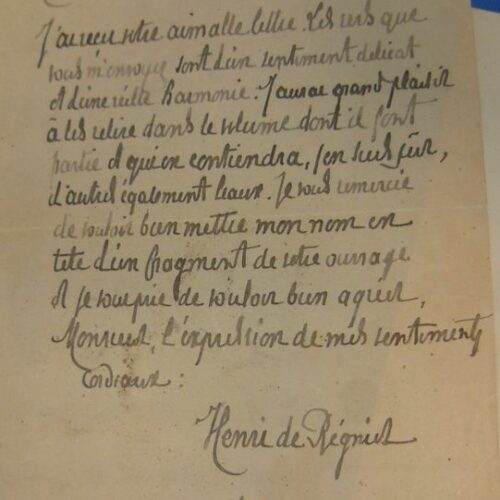 J'ai reçu votre aimable lettre. Les vers que
vous m'envoyez sont d'un sentiment délicat
et d'une réelle harmonie. J'aurai grand plaisir
à les relire dans le volume dont ils font
partie et qui en contiendra, j'en suis sûr,
d'autres également beaux. Je vous remercie
de vouloir bien mettre mon nom en
tête d'un fragment de votre ouvrage
et je vous prie de vouloir bien agréer,
Monsieur, l'expression de mes sentiments
cordiaux.
Henri de Régnier